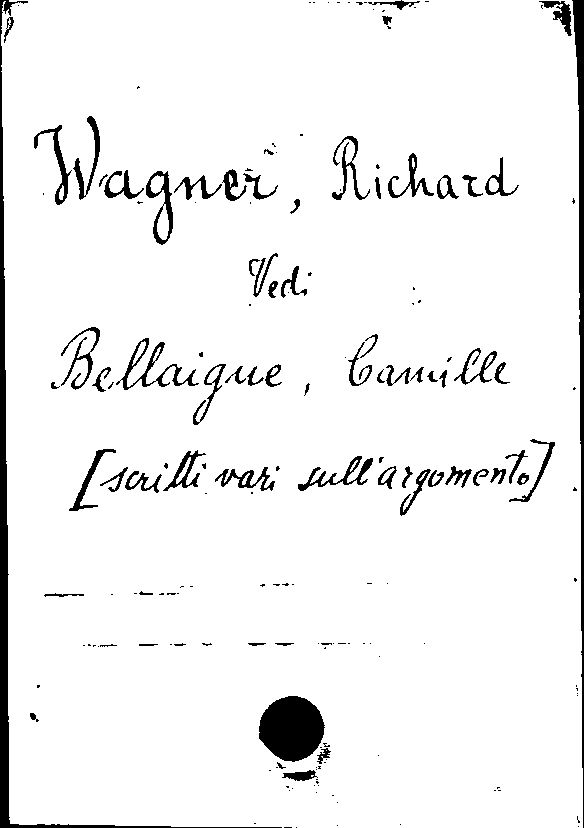 Wagner, Richard
Vedi
Bellaigue, Camille
[scritti vari sull'argomento]